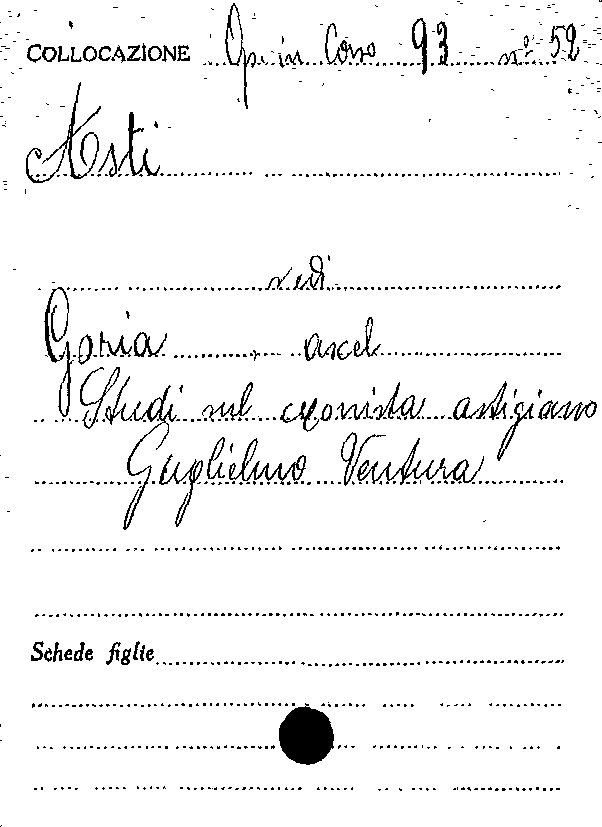 COLLOCAZIONE Op. in Corso 93 nº 52
Asti
vedi
Goria axel
Studi sul cronista astigiano
Guglielmo Ventura
Schede figlie